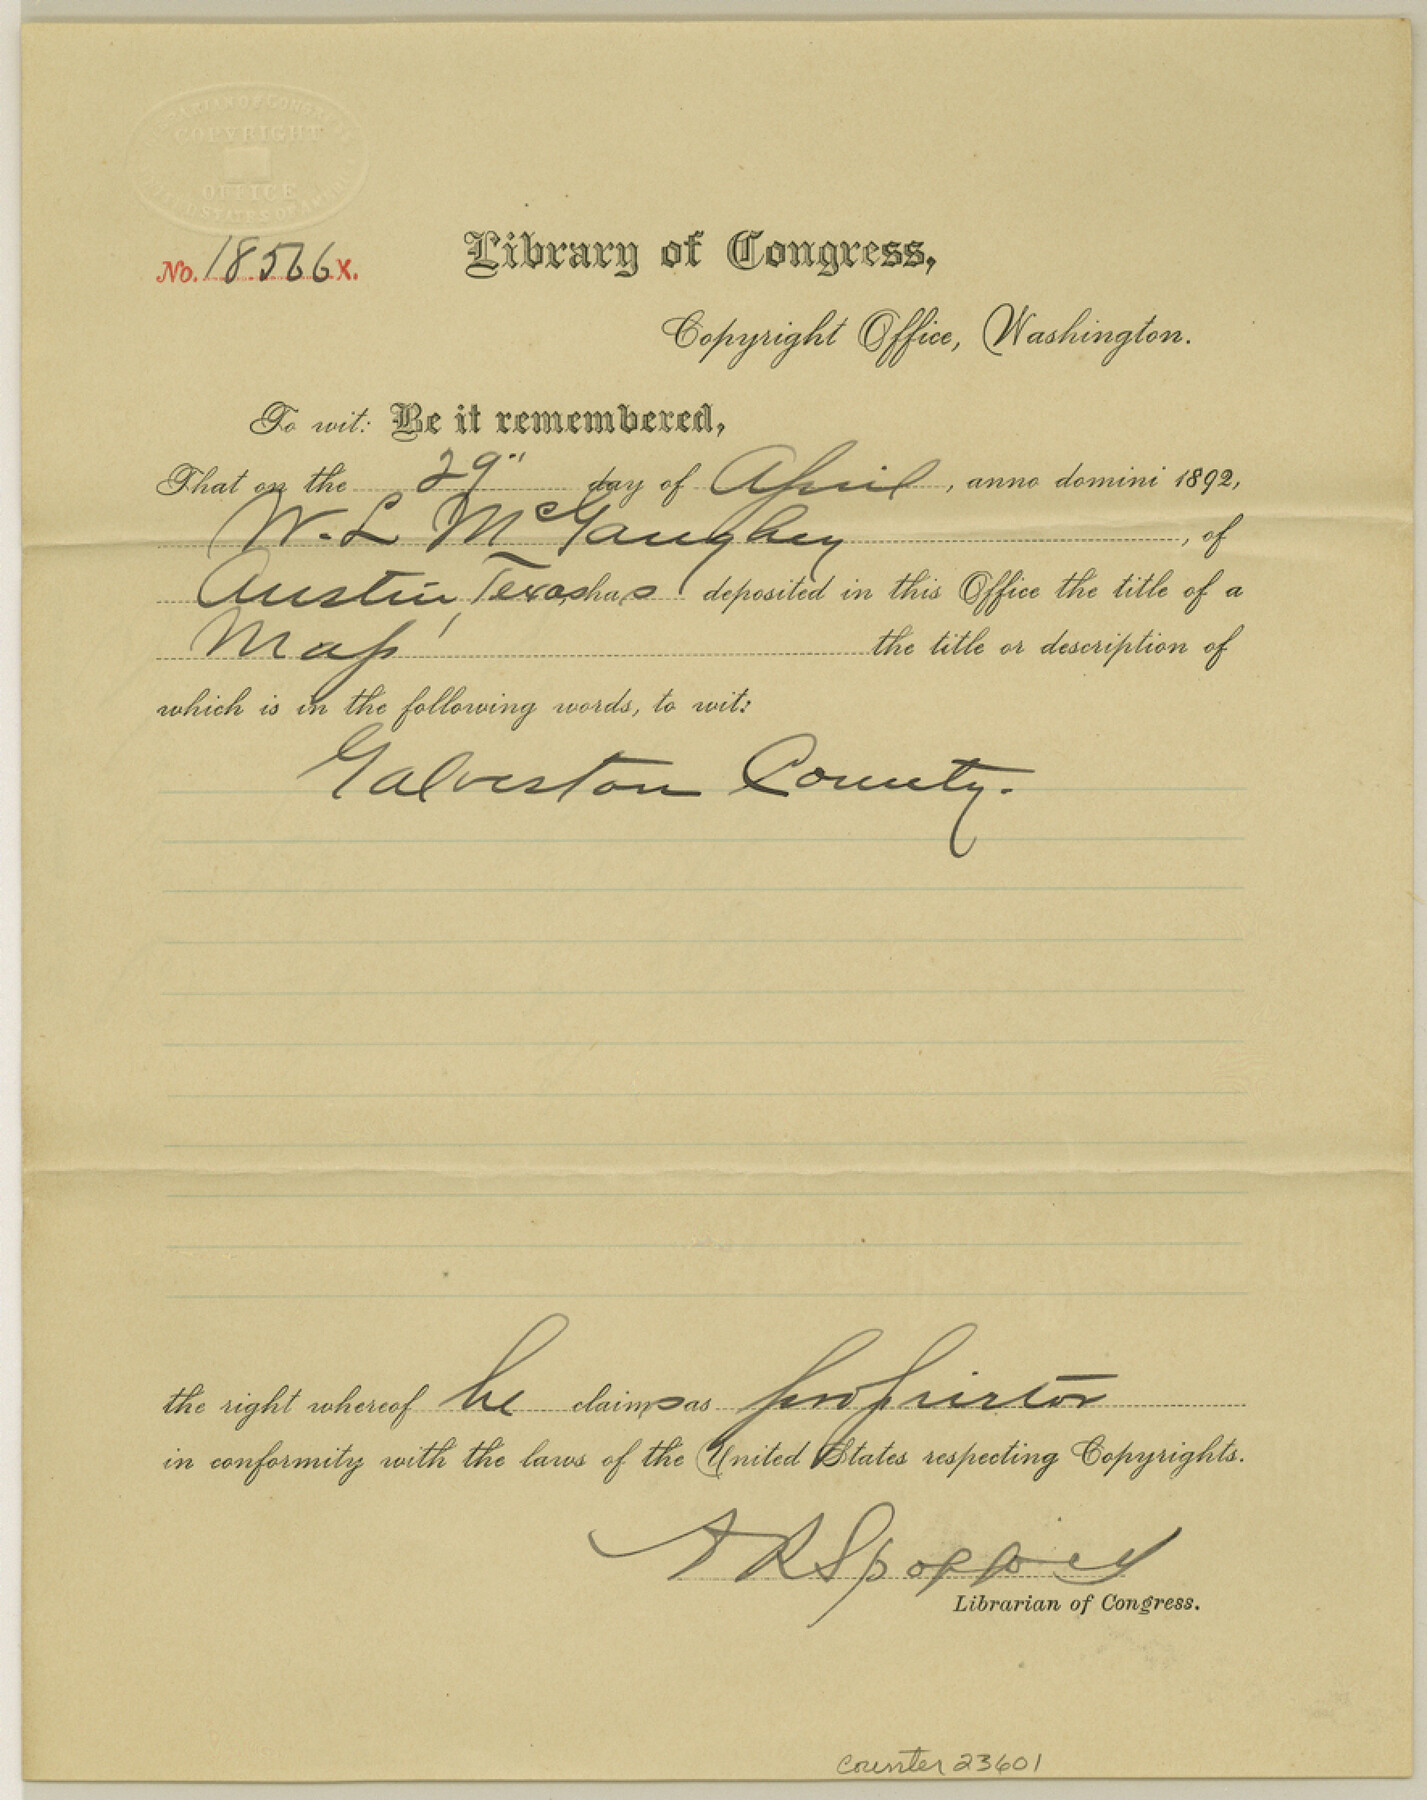 LIBRARIAN OF CONGRESS
COPYRIGHT
OFFICE
UNITED STATES OF AMERICA
No. 18566 X.
Library of Congress,
Copyright Office, Washington.
To wit: Be it remembered,
That on the 29" day of April, anno domini 1892,
W. L. McGaughey, of
Austin, Texas, has deposited in this Office the title of a
Map, the title or description of
which is in the following words, to wit:
Galveston County.
the right whereof he claims as proprietor
in conformity with the laws of the United States respecting Copyrights.
A R Spofford
Librarian of Congress.
counter 23601